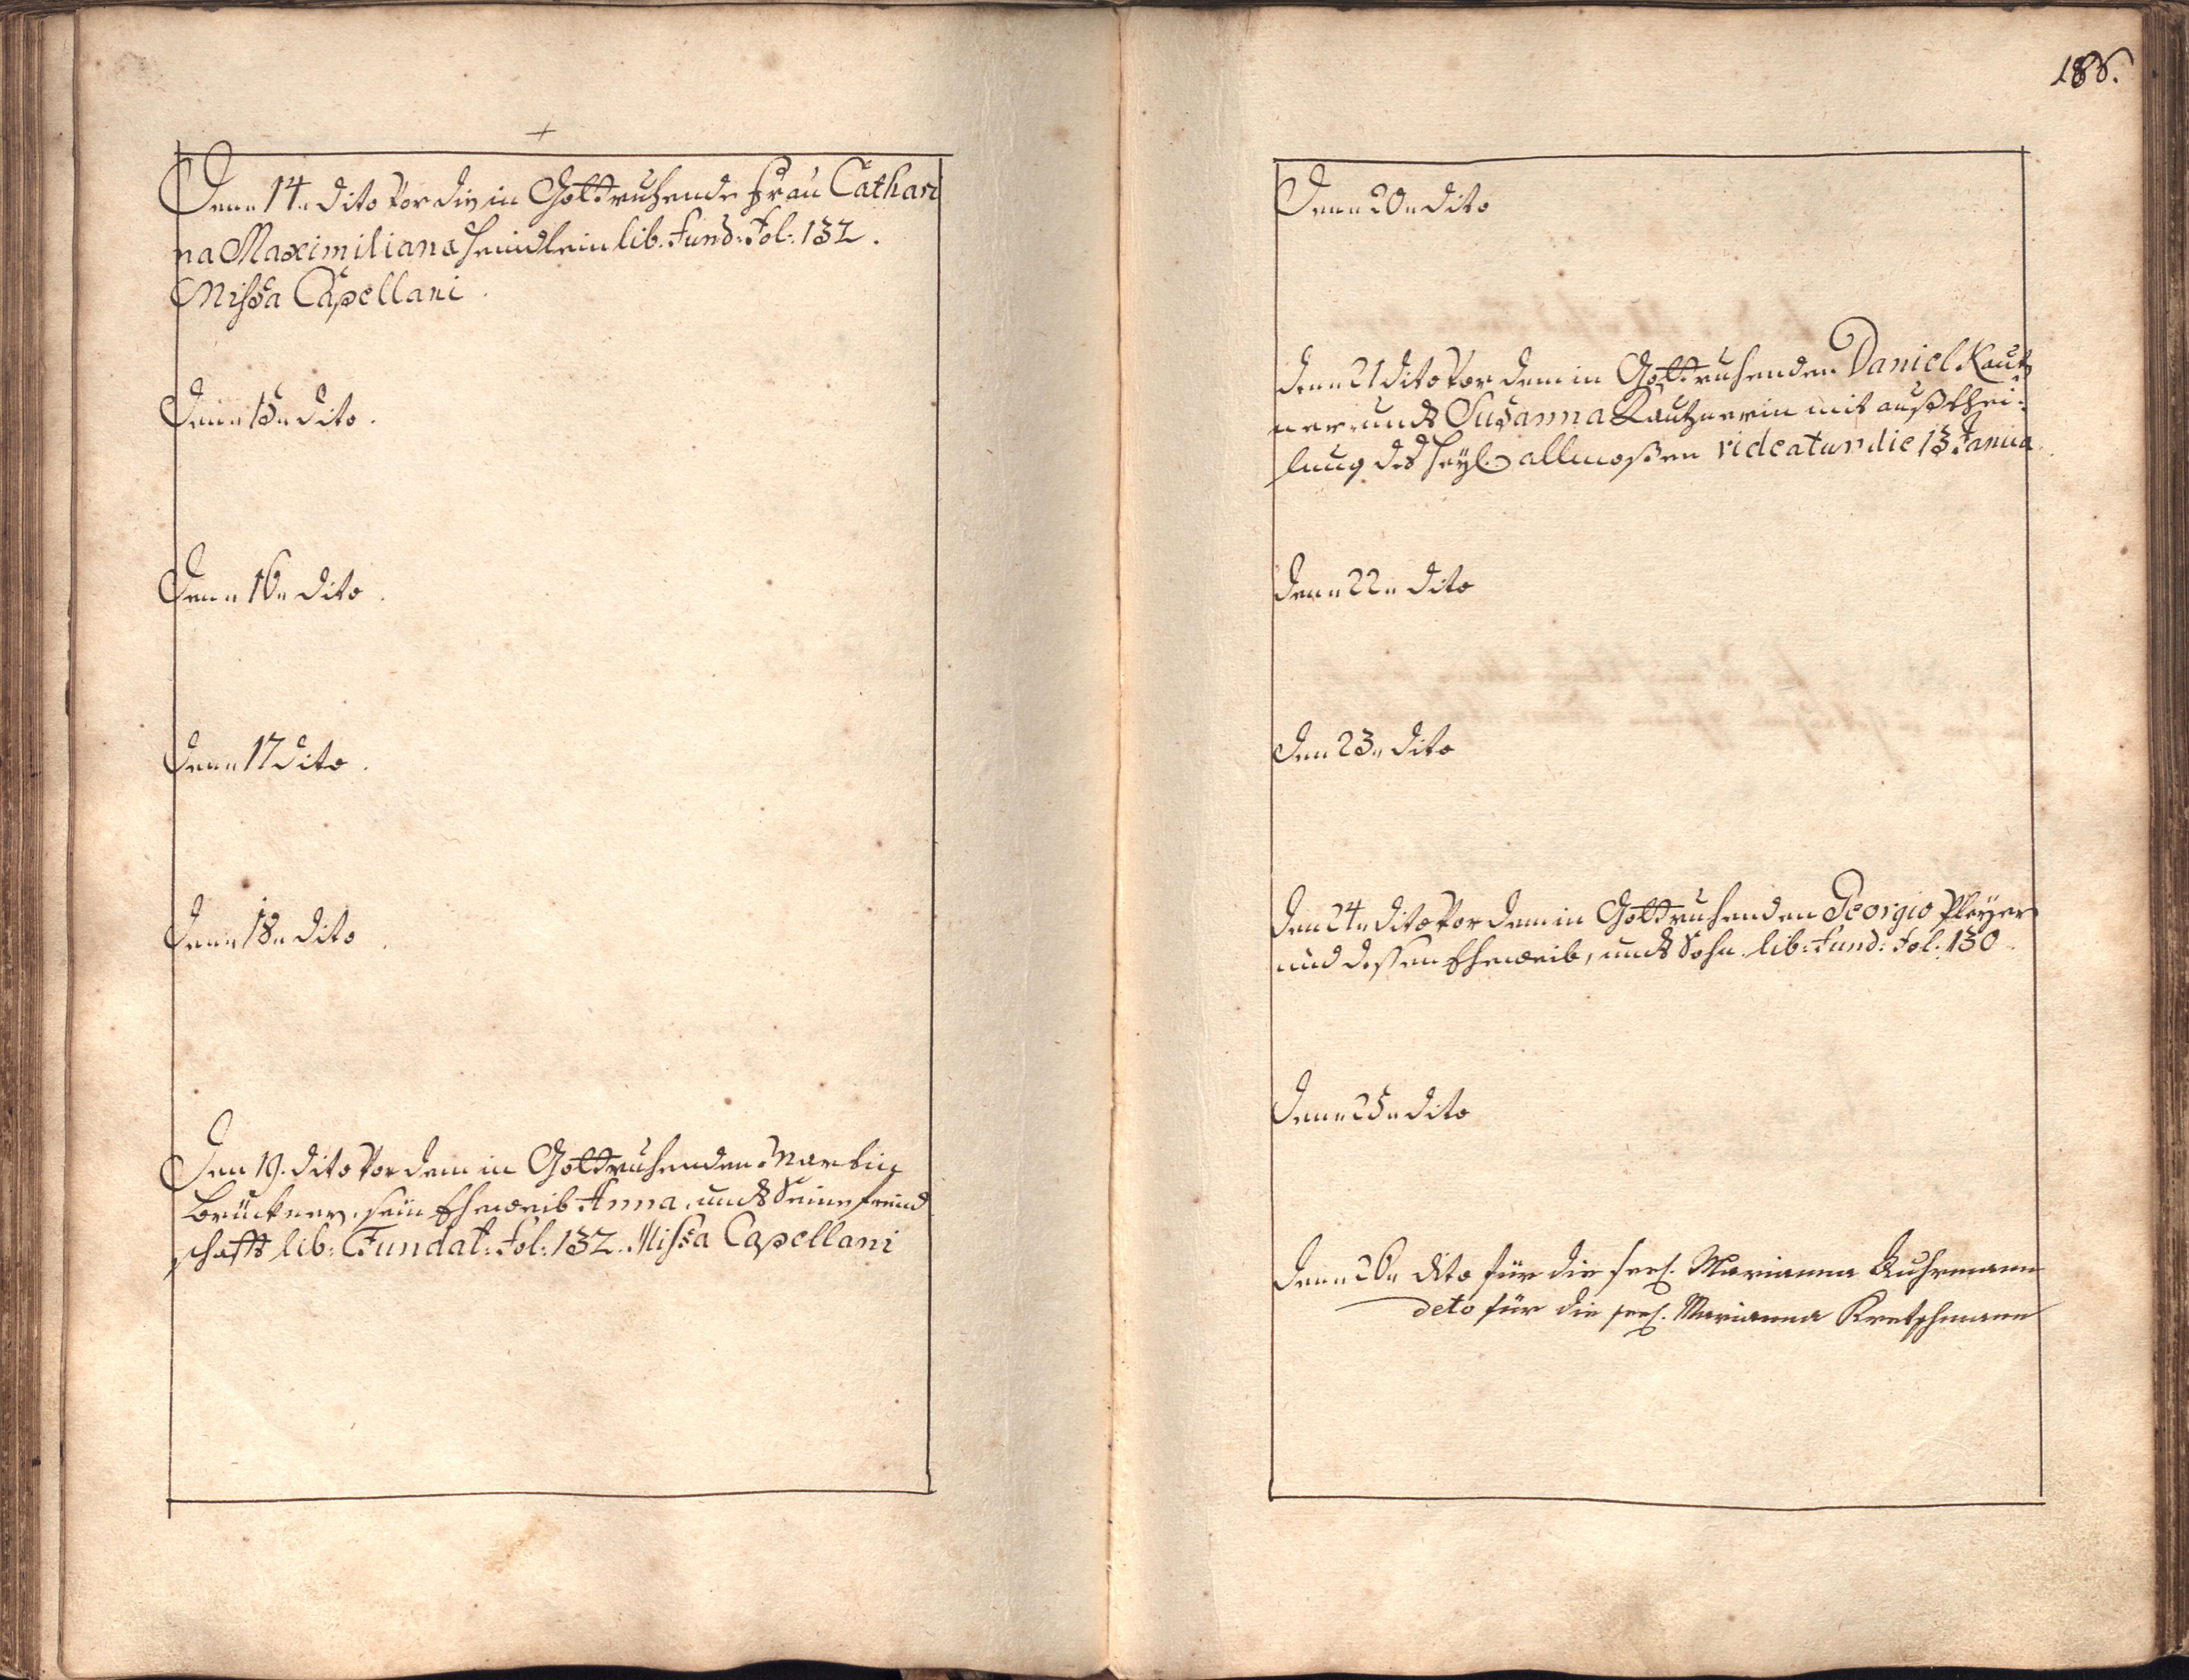 Denn 14. dito vor die in Gott ruhende FrauAthari
na Maximiliana Heindlein lib. Fund: Fol: 132.
Missa Capellani.
Denn 15 dito.
Denn 16 dito.
Denn 17 dito.
Denn 18 dito.
Den 19. dito vor dem in Gott ruhenden Martin
Brückner, sein Eheweib Anna, undt Seine freind
schafft lib: Fundat: Fol: 132. Missa Capellani
186.
Denn 20 dito
Denn 21 dito vor dem in Gott ruhenden Daniel Kautz
ner undt Susanna Kautznerin mit außthei:
lung des Heyl. allmoßen videatur die 13 Janua
Denn 22 dito
Den 23 dito
Den 24 dito vor dem in Gott ruhenden Georgio Pleyer
und dessen Eheweib, undt Sohn. lib: Fund: Fol: 130.
Denn 25 dito
Denn 26 dito für die seel. Marianna Kuhrmann
deto für die seel. Marianna Kretschmann